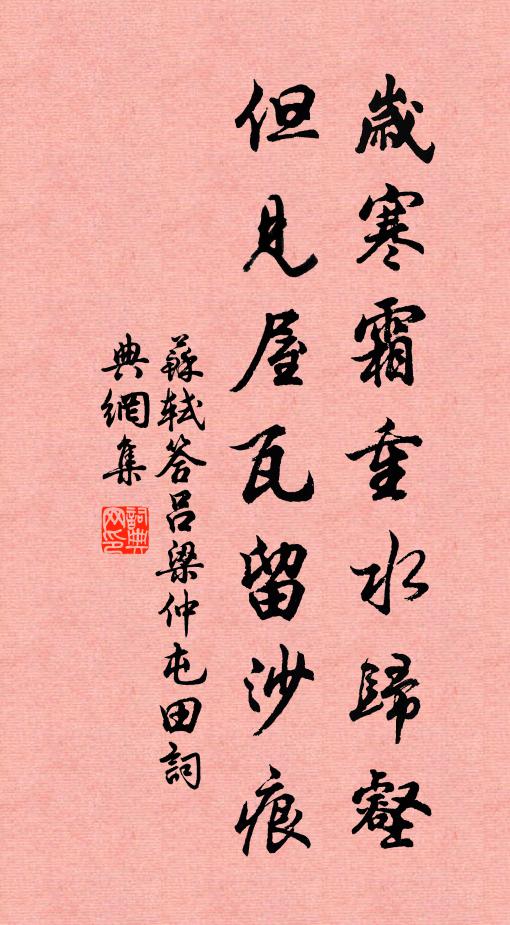 歲寒霜重水歸壑
但見屋瓦留沙痕
蘇軾答呂梁仲屯田詞
典網集
詞典網印